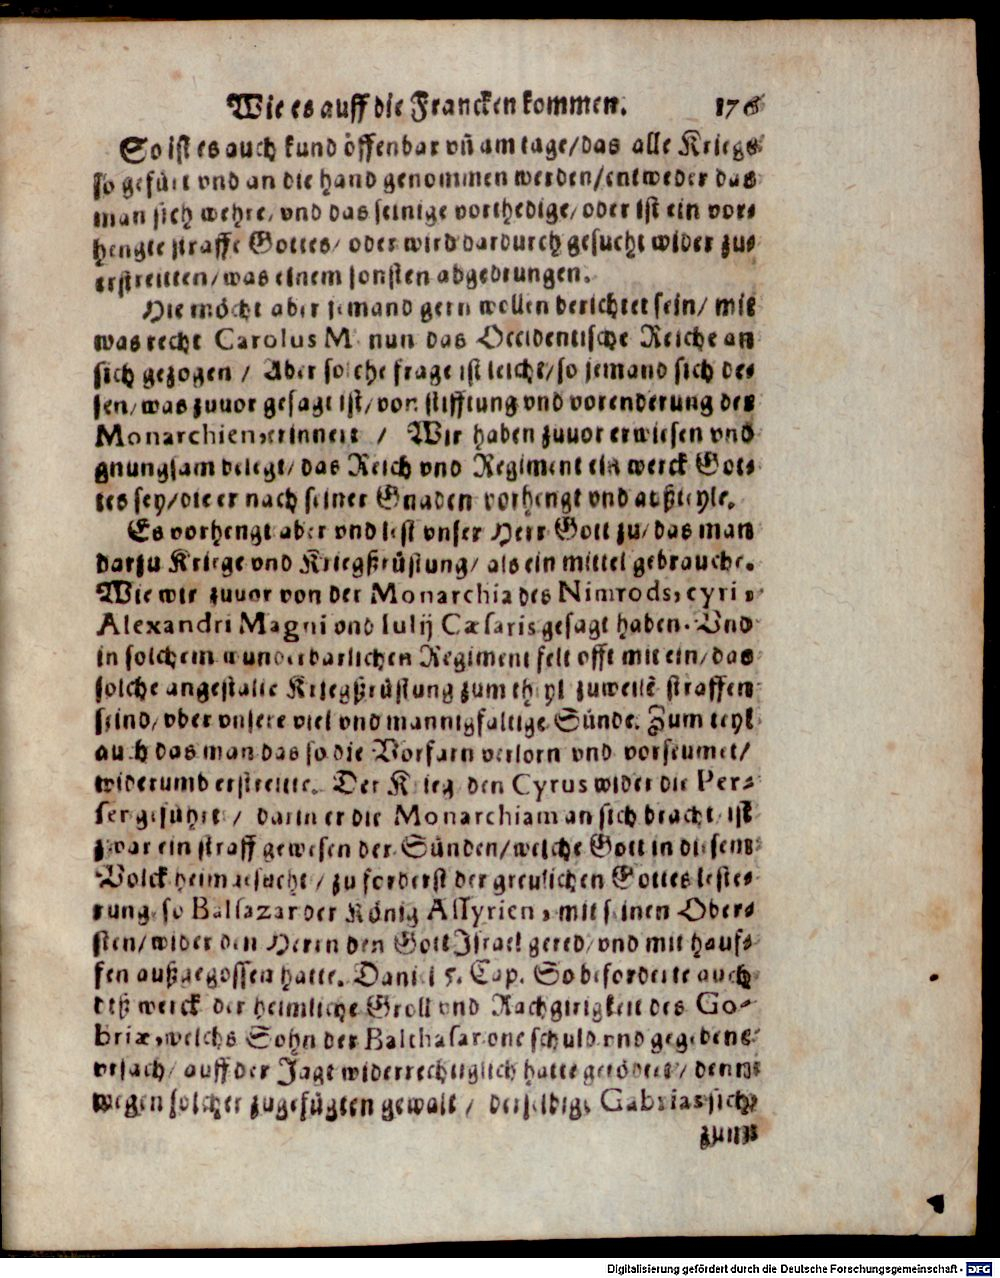 Wie es auff die Francken kommen. 176
So ist es auch kund offenbar vñ am tage/das alle Kriege
so gefürt vnd an die hand genommen werden/entweder das
man sich wehre/ vnd das seinige vorthedige/ oder ist ein vor-
hengte straffe Gottes/ oder wird dardurch gesucht wider zu-
erstreitten/was einem sonsten abgedrungen.
Hie möcht aber jemand gern wollen berichtet sein/ mit
was recht Carolus M. nun das Occidentische Reiche an
sich gezogen / Aber solche frage ist leicht/so jemand sich des-
sen/was zuuor gesagt ist/von stifftung vnd vorenderung der
Monarchien,erinnert / Wir haben zuuor erwiesen vnd
gnungsam belegt/das Reich vnd Regiment ein werck Got-
tes sey/die er nach seiner Gnaden vorhengt vnd außteyle.
Es vorhengt aber vnd lest vnser Herr Gott zu/das man
darzu Kriege vnd Kriegßrüstung/ als ein mittel gebrauche.
Wie wir zuuor von der Monarchia des Nimrods, cyri,
Alexandri Magni vnd Iulij Cæsaris gesagt haben. Vnd
in solchem wunderbarlichen Regiment felt offt mit ein/das
solche angestalte Kriegßrüstung zum theyl zuweilē straffen
seind/vber vnsere viel vnd mannigfaltige Sünde. Zum teyl
auch das man das so die Vorfarn verlorn vnd vorseumet/
widerumb erstreitte. Der Krieg den Cyrus wider die Per-
ser geführt / darin er die Monarchiam an sich bracht/ ist
zwar ein straff gewesen der Sünden/welche Gott in diesem
Volck heimgesucht / zu forderst der greulichen Gotteslestes-
rung so Balsazar der König Assyrien, mit seinen Ober-
sten/wider den Herrn den Gott Israel gered/vnd mit hauf-
fen außgegossen hatte. Daniel 5. Cap. So beforderte auch
diß werck der heimliche Groll vnd Rachgirigkeit des Go-
briæ,welchs Sohn der Balthasar one schuld vnd gegebene
vrsach/ auff der Jagt widerrechtiglich hatte getödtet/ denn
wegen solcher zugefügten gewalt / derseldige Gabrias sich
zum
Digitalisierung gefördert durch die Deutsche Forschungsgemeinschaft - DFG